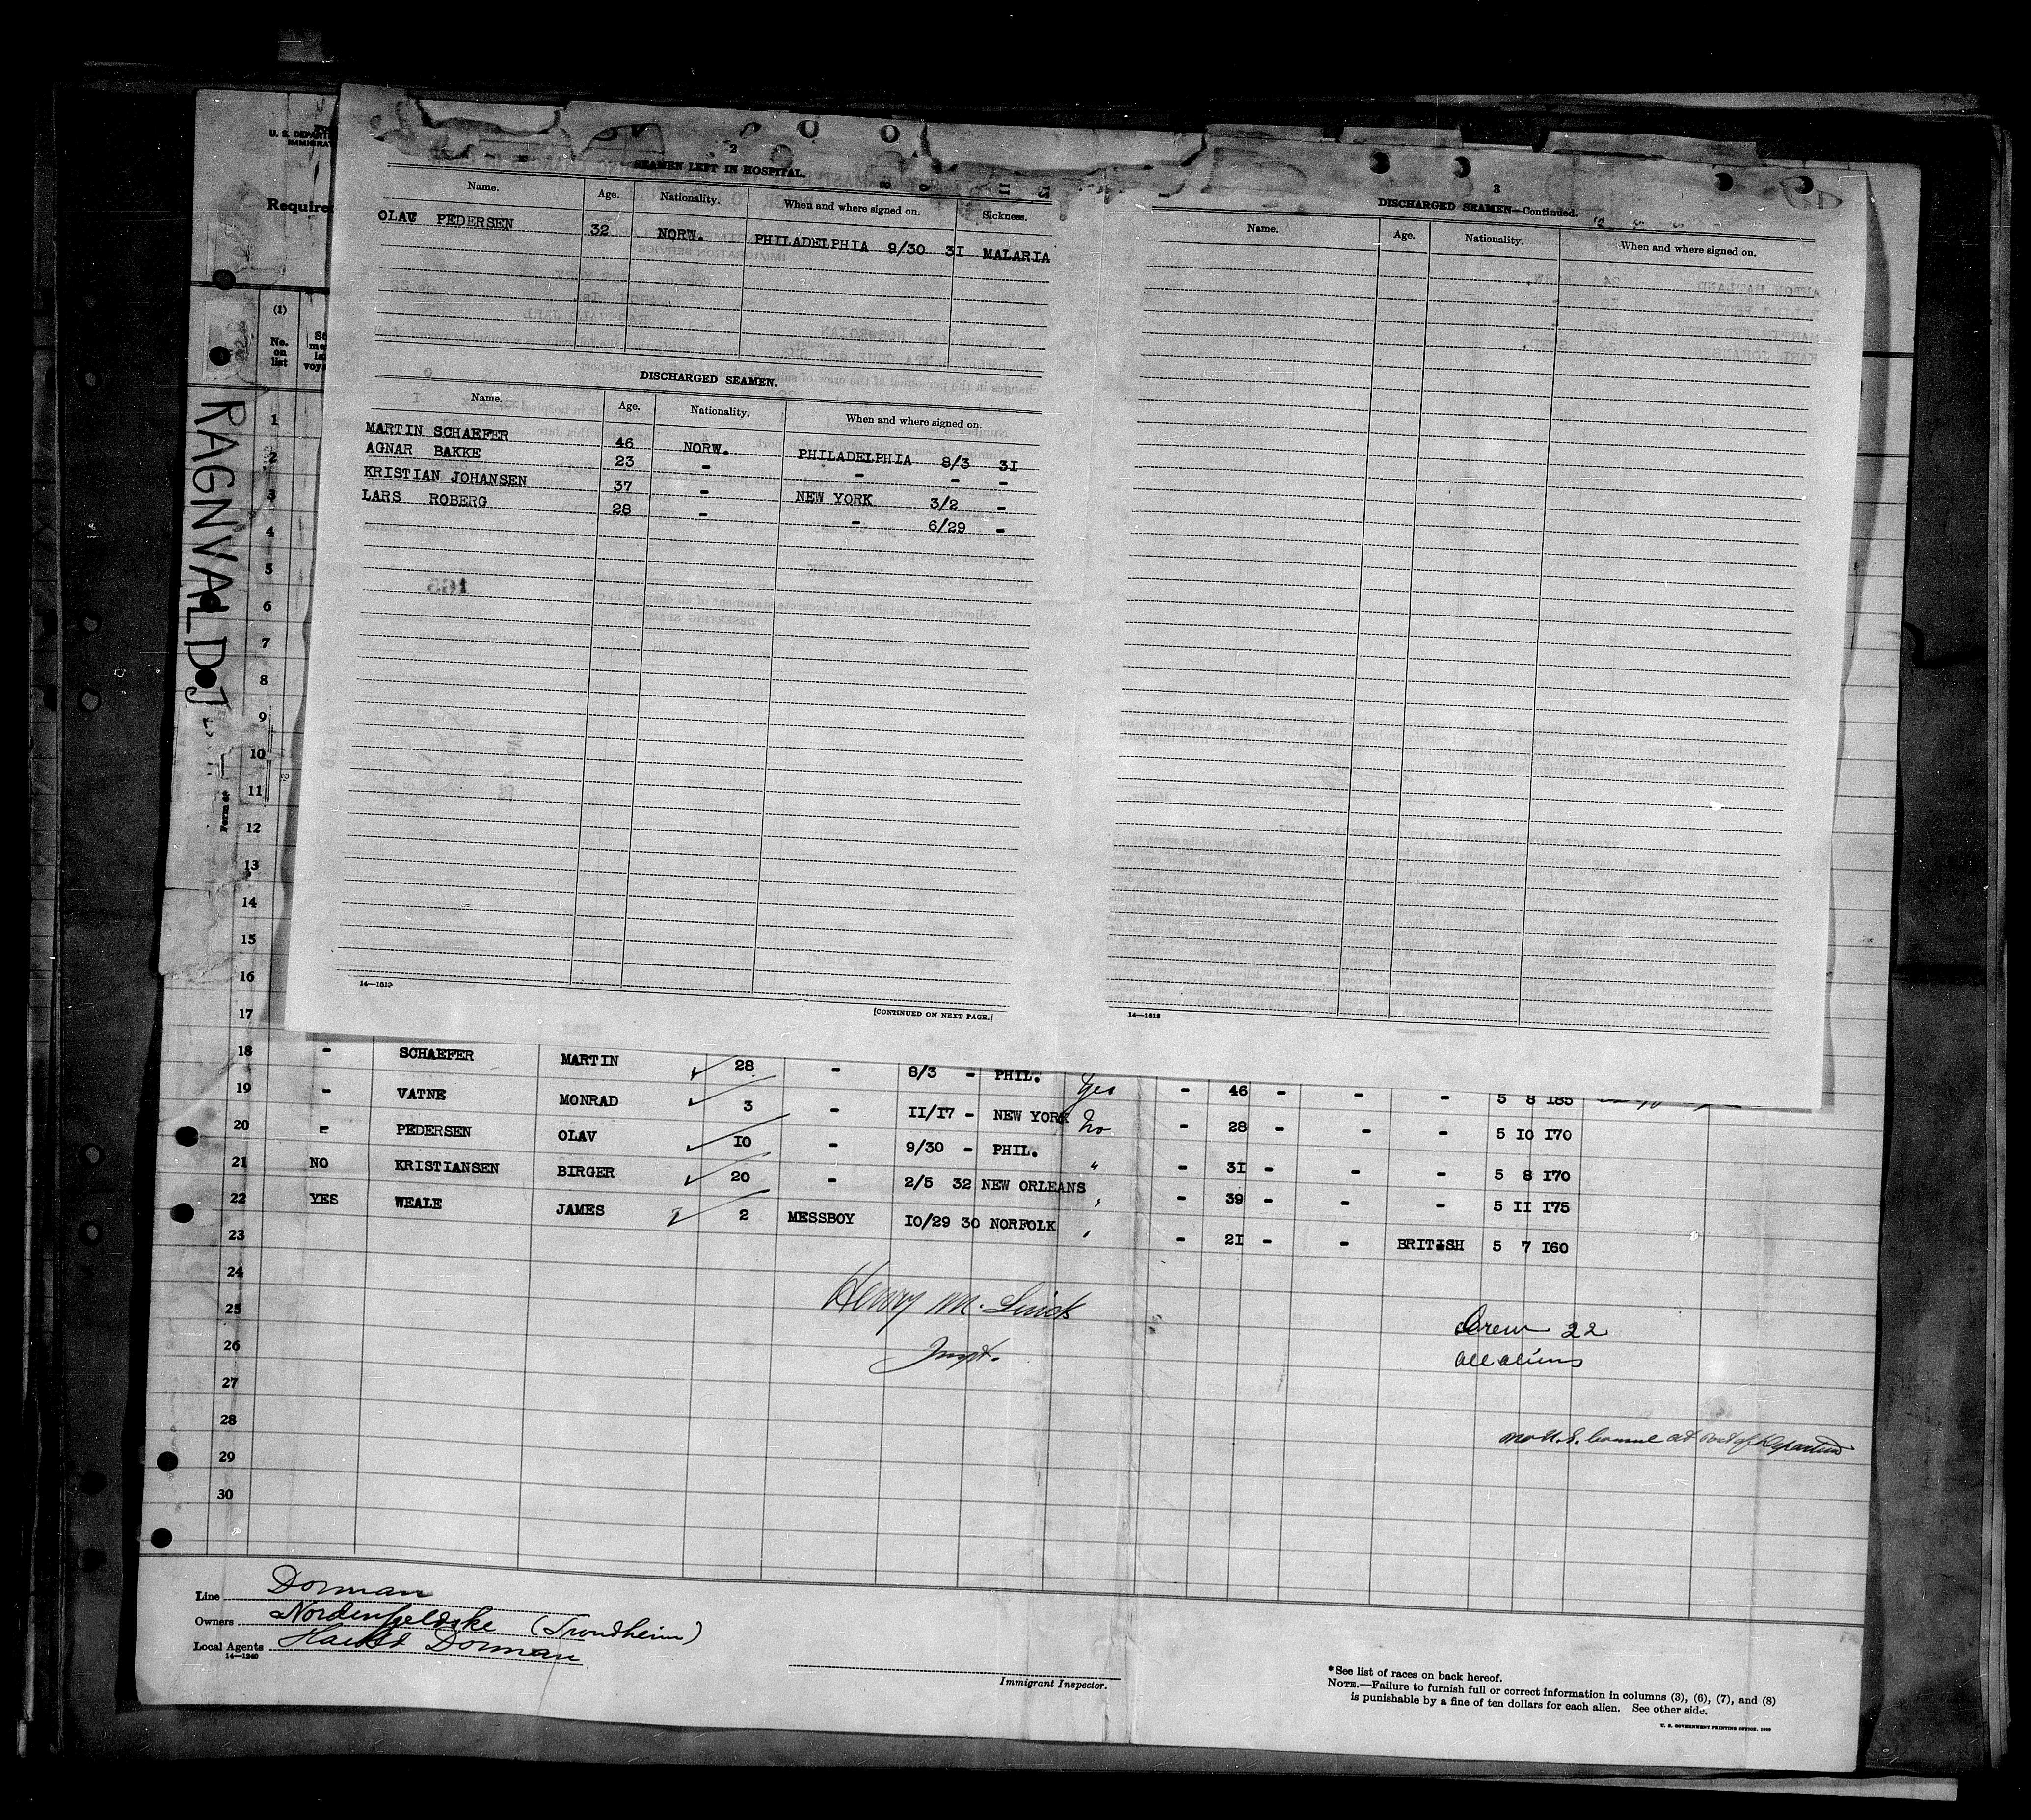 U. S. DEPART
IMMIGRAT
Require
(1)
No. on list
RAGNVALD J
Form of
2
SEAMEN LEFT IN HOSPITAL.
Name. Age. Nationality. When and where signed on. Sickness.
OLAV PEDERSEN 32 NORW. PHILADELPHIA 9/30 31 MALARIA
DISCHARGED SEAMEN.
Name. Age. Nationality. When and where signed on.
MARTIN SCHAEFER 46 NORW. PHILADELPHIA 8/3 31
AGNAR BAKKE 23 - - - -
KRISTIAN JOHANSEN 37 - NEW YORK 3/2 -
LARS ROBERG 28 - - 6/29 -
14—1613
[CONTINUED ON NEXT PAGE.]
3
DISCHARGED SEAMEN—Continued.
Name. Age. Nationality. When and where signed on.
14—1613
1
2
3
4
5
6
7
8
9
10
11
12
13
14
15
16
17
18 - SCHAEFER MARTIN 28 - 8/3 - PHIL. Yes - 46 - - - 5 8 185
19 - VATNE MONRAD 3 - 11/17 - NEW YORK No - 28 - - - 5 10 170
20 - PEDERSEN OLAV 10 - 9/30 - PHIL. " - 31 - - - 5 8 170
21 NO KRISTIANSEN BIRGER 20 - 2/5 32 NEW ORLEANS " - 39 - - - 5 11 175
22 YES WEALE JAMES 2 MESSBOY 10/29 30 NORFOLK " - 21 - - BRITISH 5 7 160
23
24
25
26
27
28
29
30
Henry M.
Inspt.
Crew 22
all aliens
no U.S. Consul at Port of Departure
Line Dorman
Owners Nordenfjeldske (Trondheim)
Local Agents Dorman
14—1240
Immigrant Inspector.
*See list of races on back hereof.
NOTE.—Failure to furnish full or correct information in columns (3), (6), (7), and (8)
is punishable by a fine of ten dollars for each alien. See other side.
U. S. GOVERNMENT PRINTING OFFICE